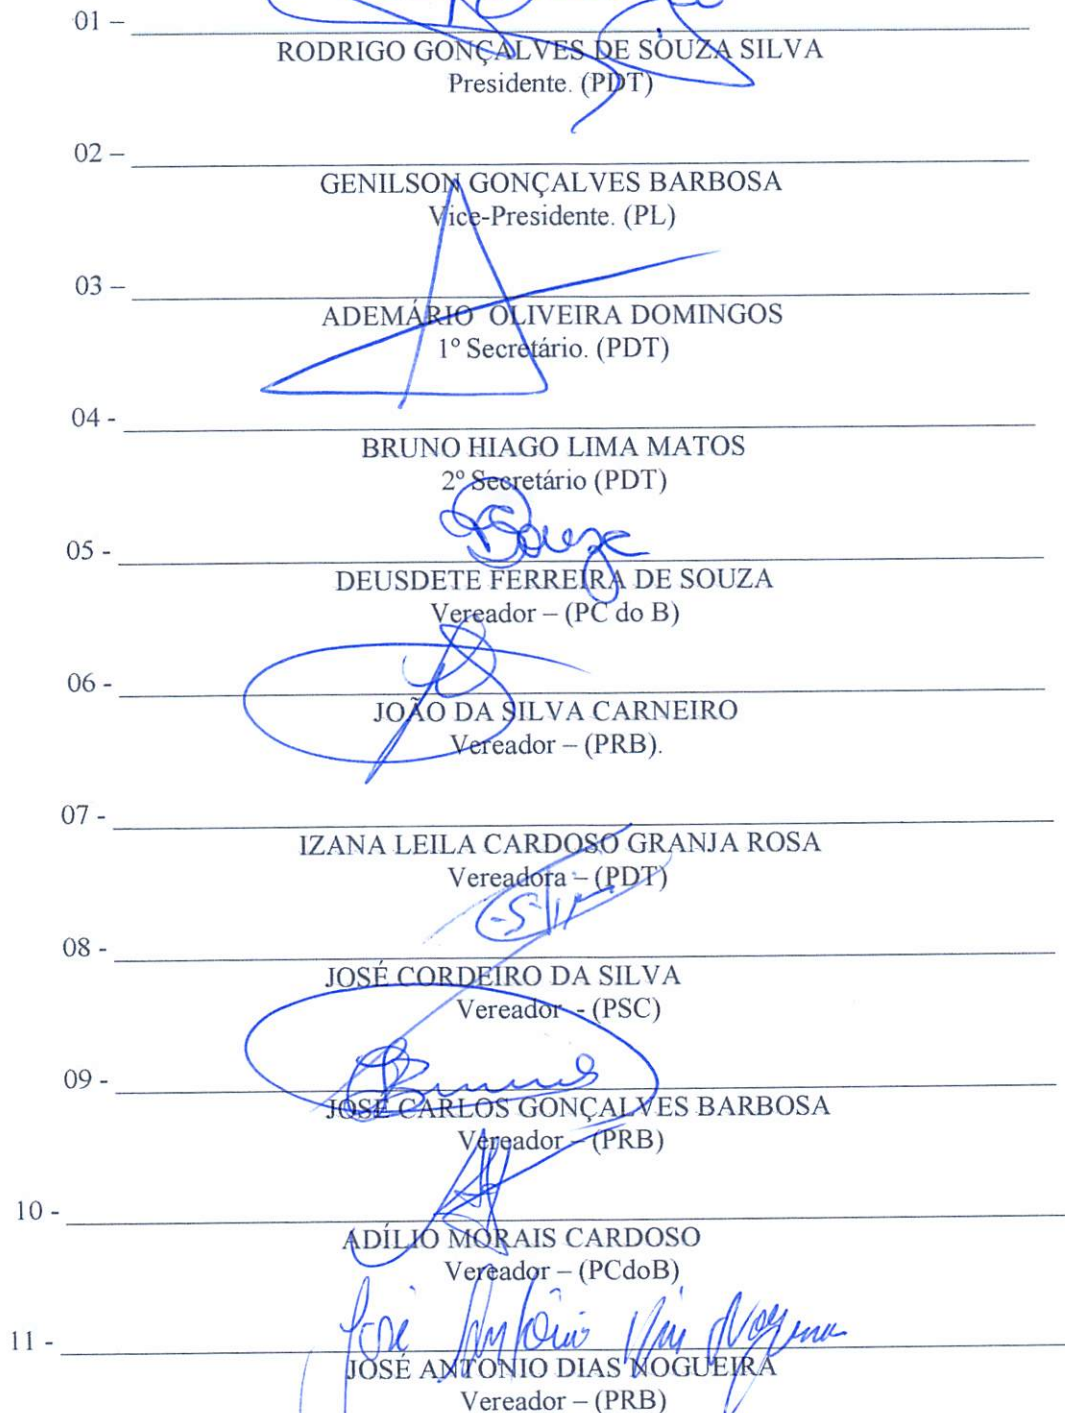 01 –
RODRIGO GONÇALVES DE SOUZA SILVA
Presidente. (PDT)
02 –
GENILSON GONÇALVES BARBOSA
Vice-Presidente. (PL)
03 –
ADEMÁRIO OLIVEIRA DOMINGOS
1º Secretário. (PDT)
04 -
BRUNO HIAGO LIMA MATOS
2º Secretário (PDT)
Souza
05 -
DEUSDETE FERREIRA DE SOUZA
Vereador – (PC do B)
06 -
JOÃO DA SILVA CARNEIRO
Vereador – (PRB).
07 -
IZANA LEILA CARDOSO GRANJA ROSA
Vereadora – (PDT)
08 -
JOSÉ CORDEIRO DA SILVA
Vereador - (PSC)
09 -
JOSÉ CARLOS GONÇALVES BARBOSA
Vereador – (PRB)
10 -
ADÍLIO MORAIS CARDOSO
Vereador – (PCdoB)
José Antônio Dias Nogueira
11 -
JOSÉ ANTONIO DIAS NOGUEIRA
Vereador – (PRB)